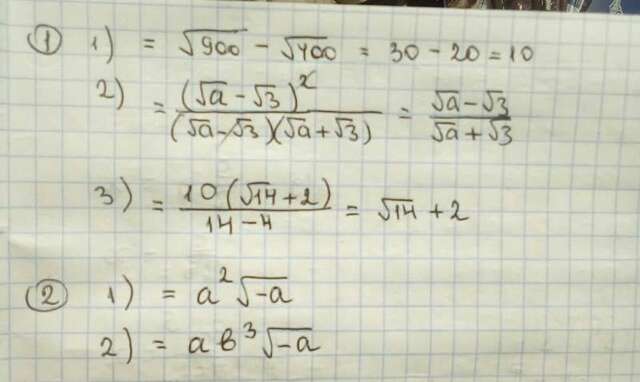 ① 1) = √900 − √400 = 30 − 20 = 10
2) = (√a − √3)² / (√a − √3)(√a + √3) = √a − √3 / √a + √3
3) = 10(√14 + 2) / 14 − 4 = √14 + 2
② 1) = a²√−a
2) = ab³√−a